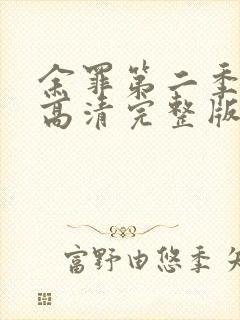 余罪第二季
高清完整版
富野由悠季 矢